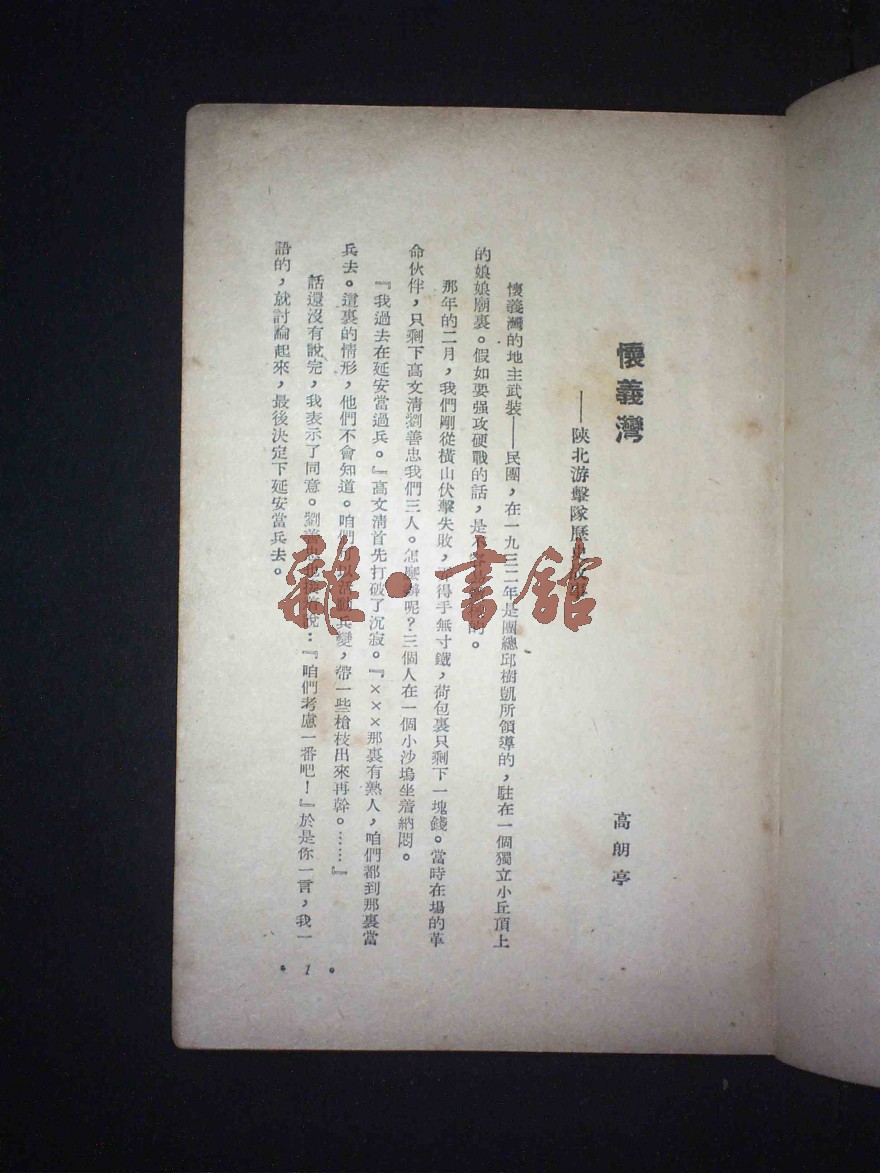 懷義灣
——陝北游擊隊歷
高朗亭
懷義灣的地主武裝——民團，在一九三二年是團總邱樹凱所領導的，駐在一個獨立小丘頂上
的娘娘廟裏。假如要强攻硬戰的話，是的。
那年的二月，我們剛從橫山伏擊失敗，得手無寸鐵，荷包裏只剩下一塊錢。當時在場的革
命伙伴，只剩下高文清劉善忠我們三人。怎麼辦呢？三個人在一個小沙塢坐着納悶。
『我過去在延安當過兵。』高文清首先打破了沉寂。『×××那裏有熟人，咱們都到那裏當
兵去。這裏的情形，他們不會知道。咱們兵變，帶一些槍枝出來再幹。……』
話還沒有說完，我表示了同意。劉善說：『咱們考慮一番吧！』於是你一言，我一
語的，就討論起來，最後決定下延安當兵去。
• 1 •
雜·書館